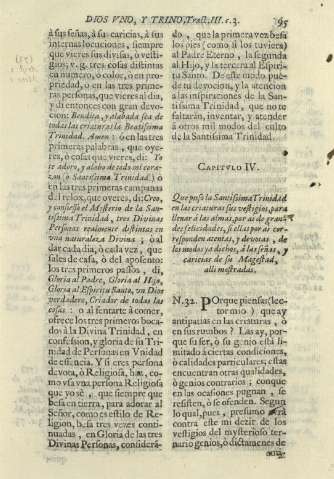 DIOS VNO, Y TRINO, Tract. III. c. 3. 95
à sus señas, à su caricias, à sus
internas locuciones, siempre
que vieres sus divisas, ò vesti-
gios; v. g. tres cosas distintas
en numero, ò color, ò en pro-
priedad, ò en las tres prime-
ras personas, que vieres al dia,
y di entonces con gran devo-
cion: Bendita, y alabada sea de
todas las criaturas la Beatissima
Trinidad. Amen: ò en las tres
primeras palabras, que oye-
res, ò cosas que vieres, di: Yo
te adoro, y alabo de todo mi cora-
zon (ò Santissima Trinidad) ò
en las tres primeras campanas
del relox, que oyeres, di; Creo,
y confiesso el Misterio de la San-
tissima Trinidad, tres Divinas
Personas realmente distintas en
vna naturaleza Divina; ò al
dar cada dia, ò cada vez, que
sales de casa, ò del aposento
los tres primeros passos, di,
Gloria al Padre, Gloria al Hijo,
Gloria al Espiritu Santo, vn Dios
verdadero, Criador de todas las
cosas: ò al sentarte à comer,
ofrece los tres primeros boca-
dos à la Divina Trinidad, en
confession, y gloria de su Tri-
nidad de Personas en Vnidad
de essencia. Y si eres persona
devota, ò Religiosa, haz, co-
mo vsa vna persona Religiosa
que yo sè, que siempre que
besa en tierra, para adorar al
Señor, como es estilo de Reli-
gion, besa tres vezes conti-
nuadas, en Gloria de las tres
Divinas Personas, considerã-
do, que la primera vez besa
los pies (como si los tuviera)
al Padre Eterno, la segunda
al Hijo, y la tercera al Espiri-
tu Santo. De este modo pue-
de tu devocion, y la atencion
à las inspiraciones de la San-
tissima Trinidad, que no te
faltaràn, inventar, y atender
à otros mil modos del culto
de la Santissima Trinidad.
CAPITVLO IV.
Que puso la Santissima Trinidad
en las criaturas sus vestigios, para
llenar à las almas, por às de gran-
des felicidades, si ellas por às cor-
responden atentas, y devotas, de
los modos ya dichos, à las señas, y
caricias de su Magestad,
alli mostradas.
N. 32. POrque piensas (lec-
tor mio) que ay
antipatias en las criaturas, ò
en sus rumbos? Las ay, por-
que su ser, ò su genio està li-
mitado à ciertas condiciones,
ò calidades particulares; estas
encuentran otras qualidades,
ò genios contrarios; conque
en las ocasiones pugnan, se
resisten, ò se ofenden. Segun
lo qual, pues, presumo serà
contra este mi dezir de los
vestigios del mysterioso ter-
nario genios, ò dictamenes de